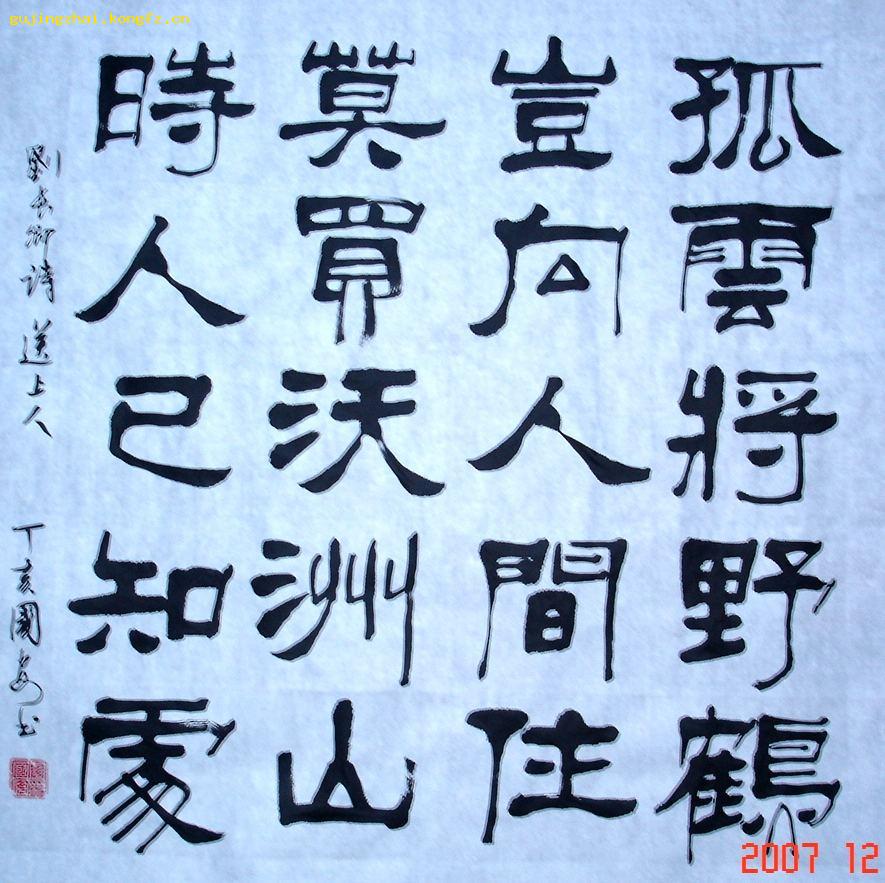 gujingzhai.kongfz.cn
孤雲將野鶴
豈向人間住
莫買沃洲山
時人已知處
劉長卿詩 送上人 丁亥國安书
2007 12